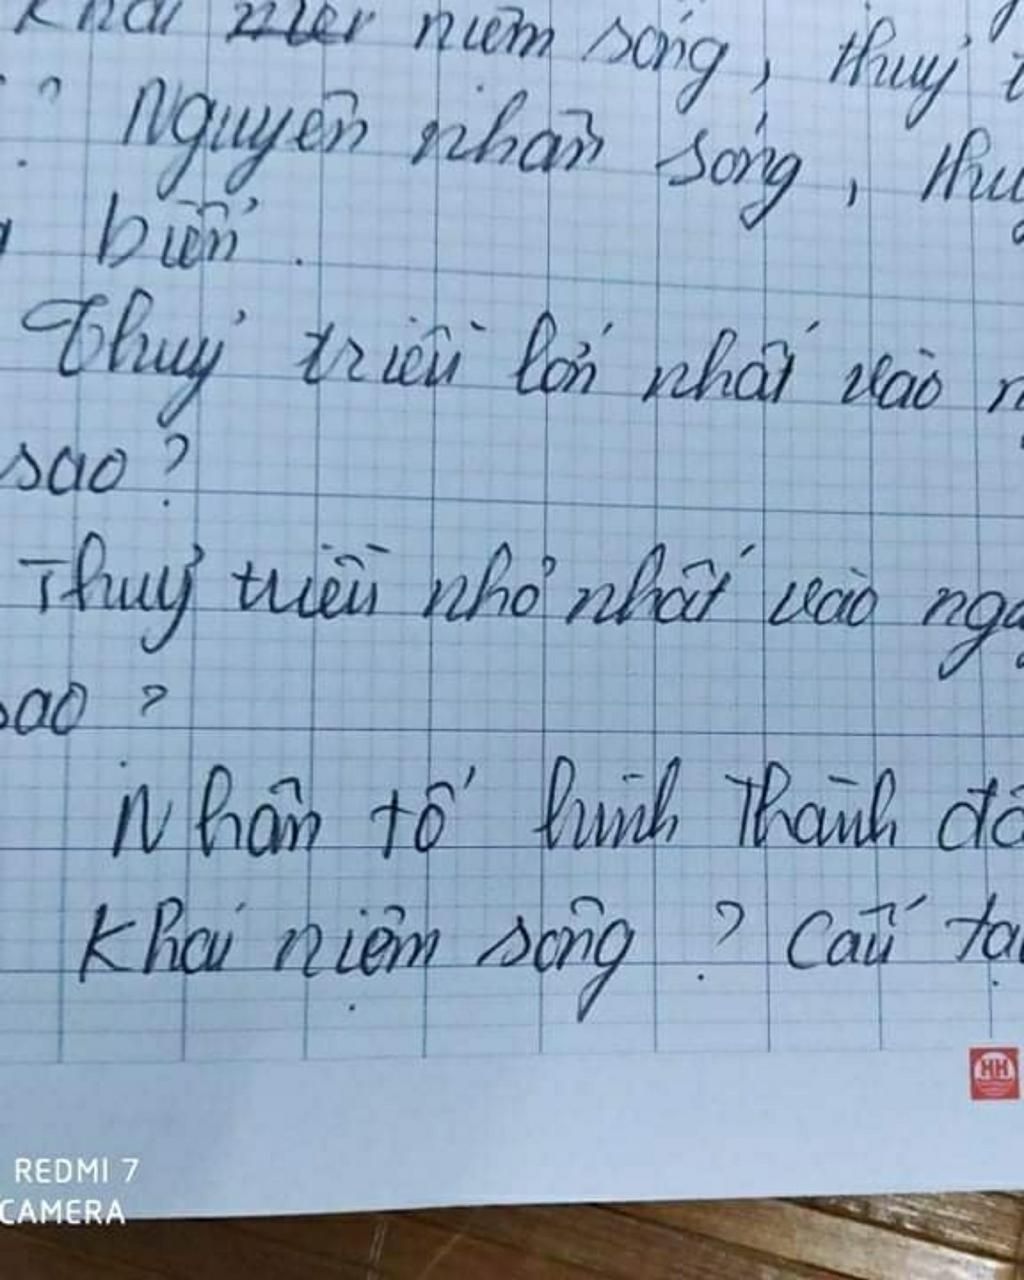 Khái niệm sóng, thuỷ
? Nguyên nhân sóng, thu
biển.
Thuỷ triều lớn nhất vào n
sao?
Thuỷ triều nhỏ nhất vào ngà
sao?
Nhân tố hình thành đấ
Khái niệm sông? Cấu tạ
HH
REDMI 7
CAMERA